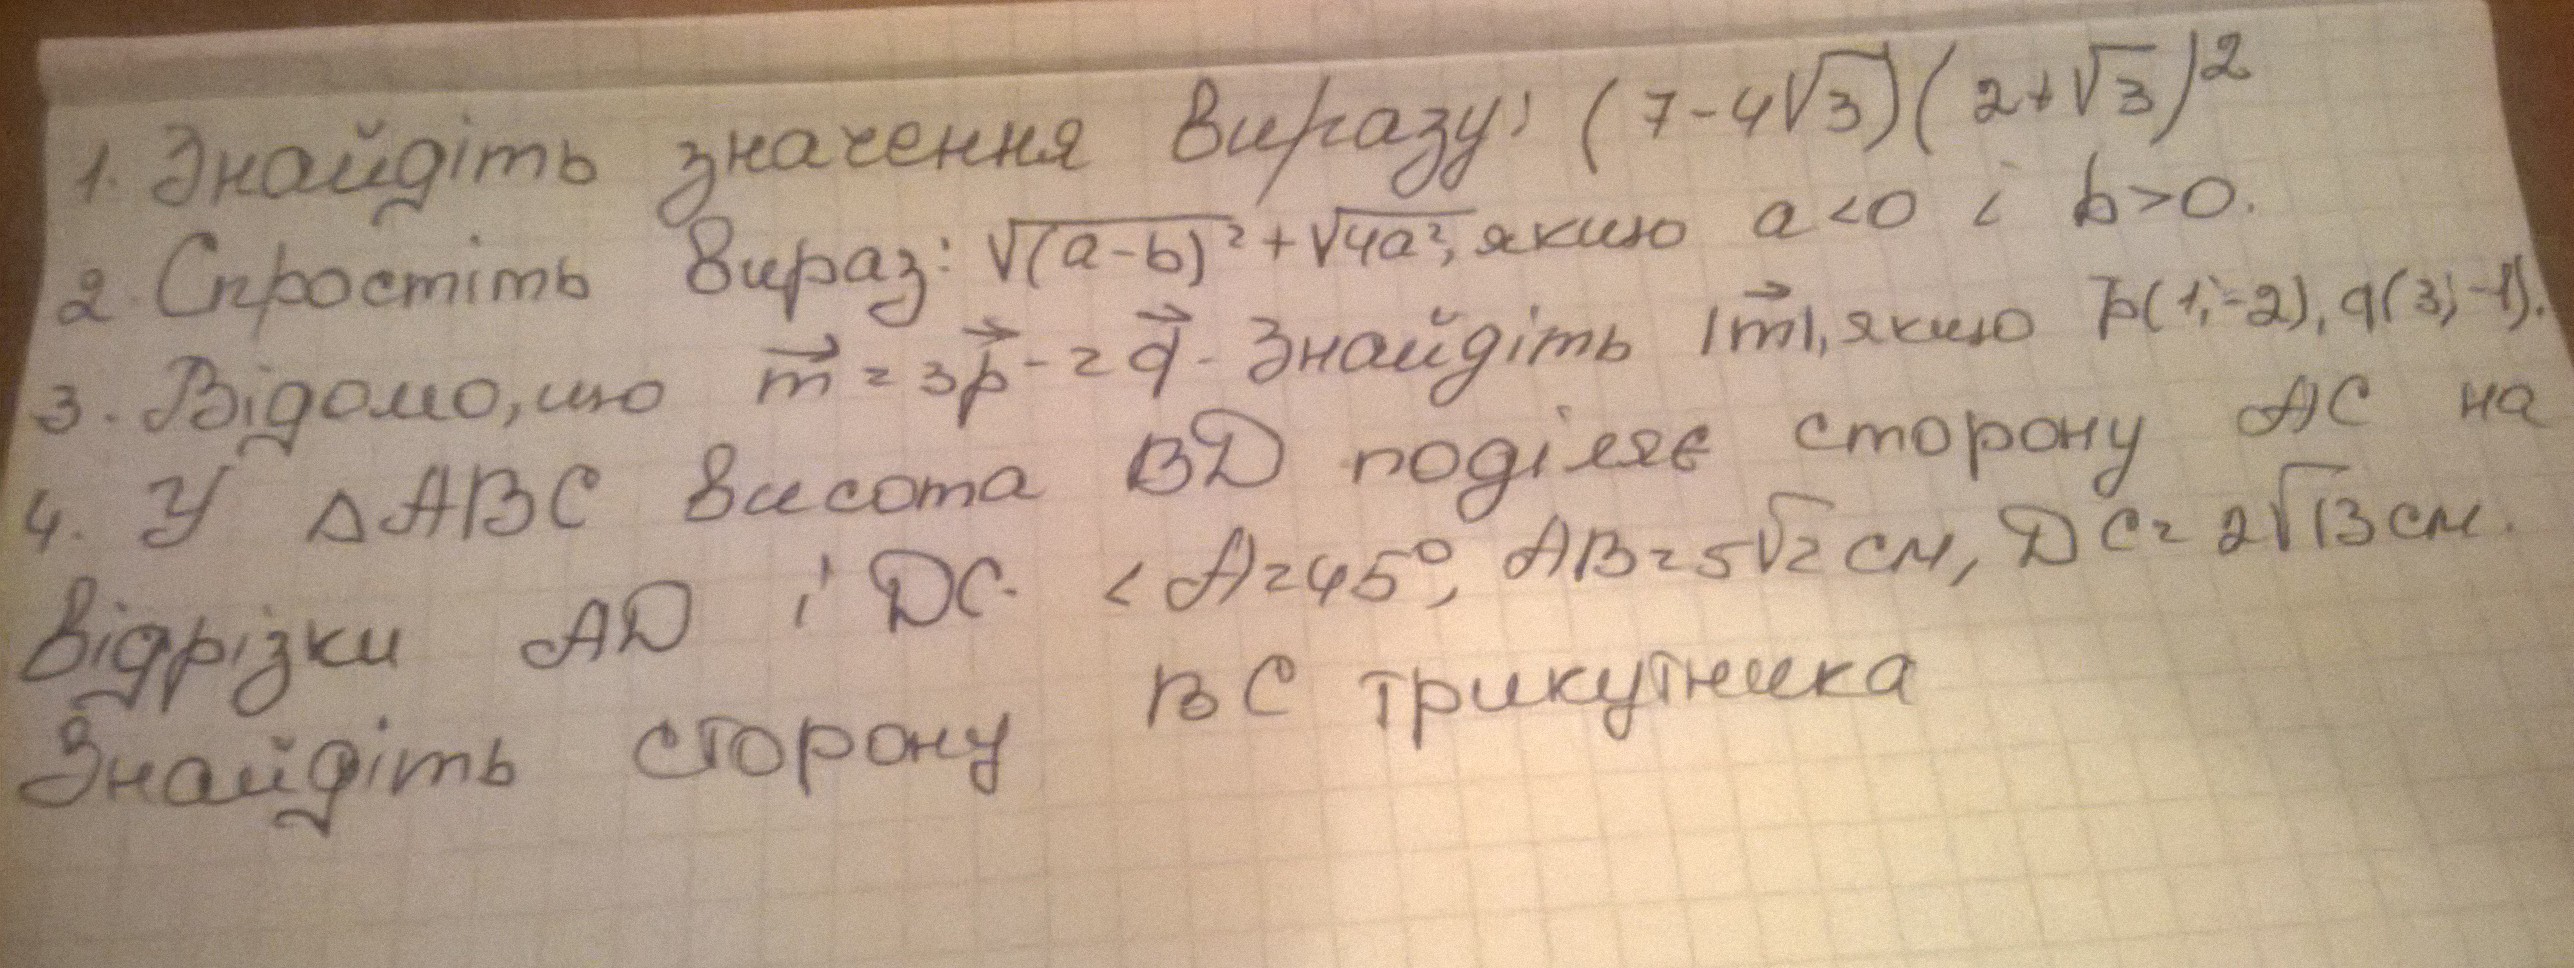 1. Знайдіть значення виразу: (7-4√3)(2+√3)²
2. Спростіть вираз: √(a-b)² + √4a², якщо a<0 і b>0.
3. Відомо, що m⃗ = 3p⃗ - 2q⃗. Знайдіть |m⃗|, якщо p⃗(1;-2), q(3;-1).
4. У △ABC висота BD поділяє сторону AC на
відрізки AD і DC. <A=45°, AB=5√2 см, DC=2√13 см.
Знайдіть сторону BC трикутника